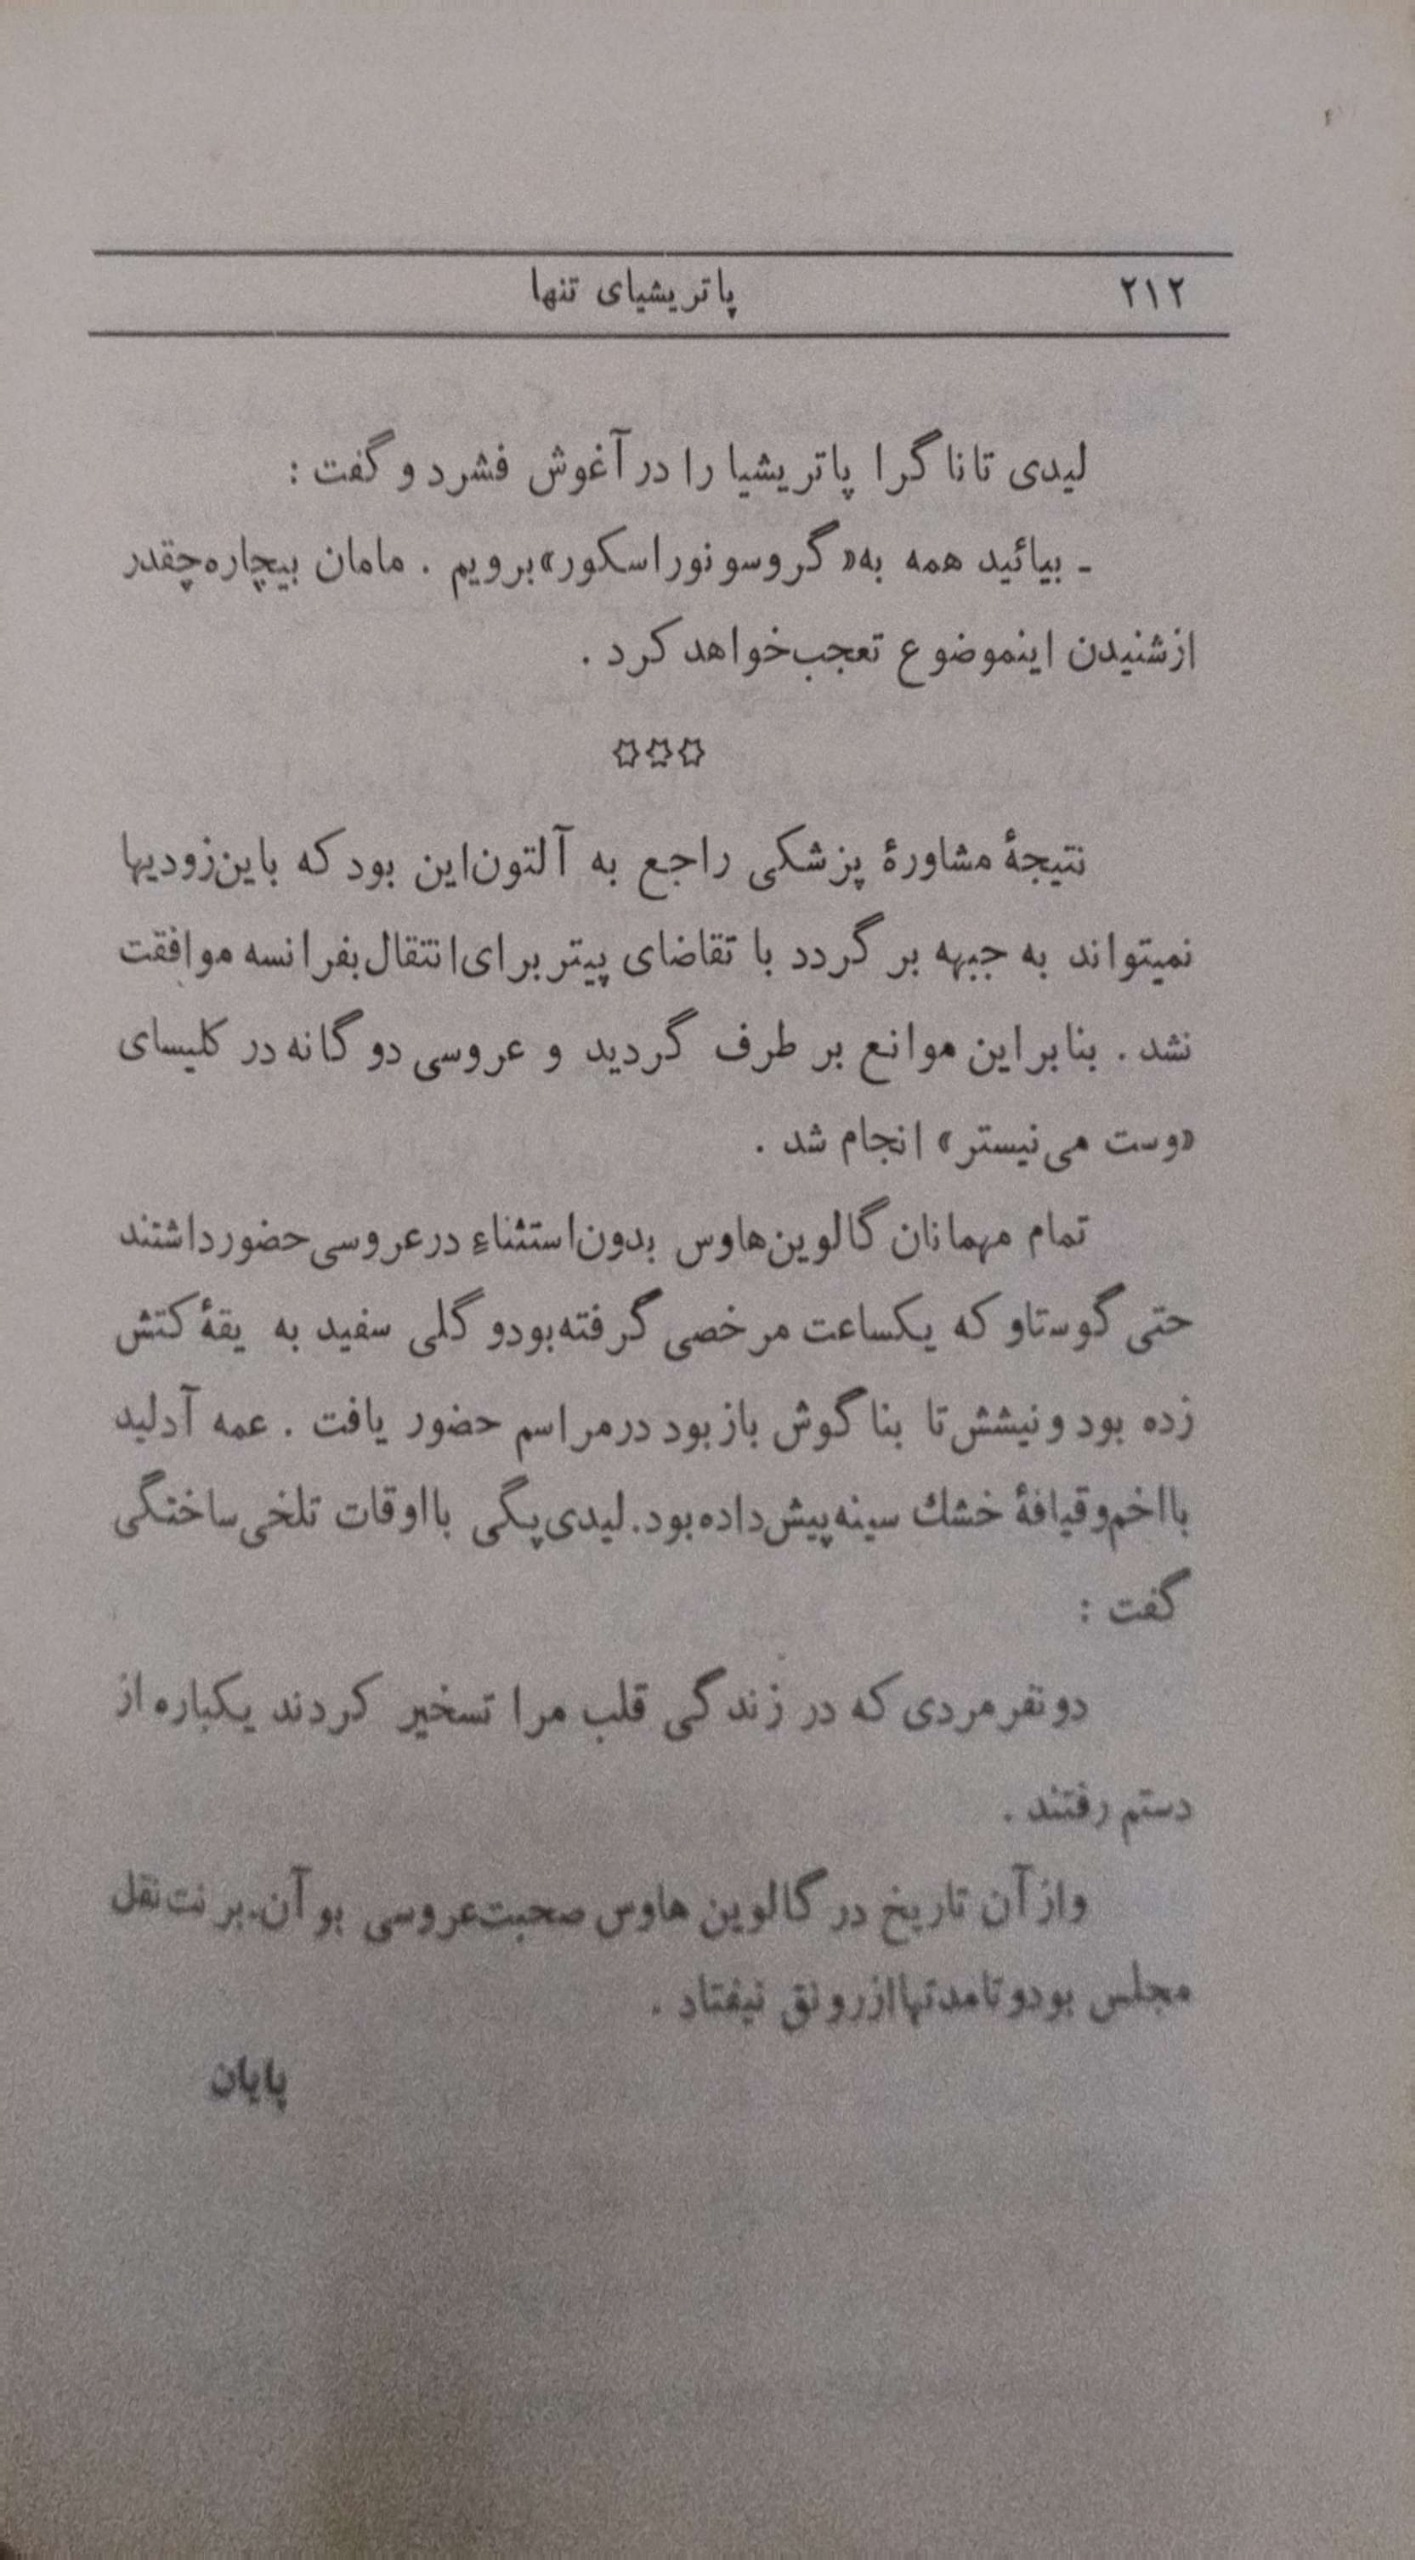 ۲۱۲ پاتریشیای تنها
لیدی تاناگرا پاتریشیا را در آغوش فشرد و گفت :
ـ بیائید همه به «گروسونوراسکور» برویم . مامان بیچاره چقدر
از شنیدن اینموضوع تعجب خواهد کرد .
✩✩✩
نتیجهٔ مشاورهٔ پزشکی راجع به آلتون این بود که باین زودیها
نمیتواند به جبهه بر گردد با تقاضای پیتر برای انتقال بفرانسه موافقت
نشد . بنابراین موانع بر طرف گردید و عروسی دوگانه در کلیسای
«وست می‌نیستر» انجام شد .
تمام مهمانان گالوین‌هاوس بدون استثناء در عروسی حضور داشتند
حتی گوستاو که یکساعت مرخصی گرفته بود و گلی سفید به یقهٔ کتش
زده بود و نیشش تا بناگوش باز بود در مراسم حضور یافت . عمه آدلید
با اخم و قیافهٔ خشك سینه پیش داده بود . لیدی پگی با اوقات تلخی ساختگی
گفت :
دو نفر مردی که در زندگی قلب مرا تسخیر کردند یکباره از
دستم رفتند .
و از آن تاریخ در گالوین هاوس صحبت عروسی بوآن‌ـ‌برنت نقل
مجلس بود و تا مدتها از رونق نیفتاد .
پایان